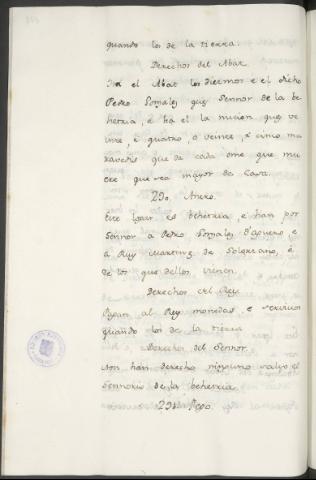 quando los de la tierra.
Derechos del Abat.
Ha el Abat los diezmos e el dicho
Pedro Gonzalez que Sennor de la be
hetria, e ha el la nucion que ve
inte, e quatro, o veinte, e cinco ma
ravedis que de cada ome que mu
ere que sea mayor de casa.
290. Anero.
Este logar es behetria, e han por
Sennor a Pedro Gonzalez d'Aguero e
a Ruy Martinez de Solorzano, e
de los que dellos vienen.
Derechos del Rey.
Pagan al Rey monedas e servicios
quando los de la tierra
Derechos del Sennor.
Non han derecho ninguno salvo el
Sennorio de la behetria.
291.